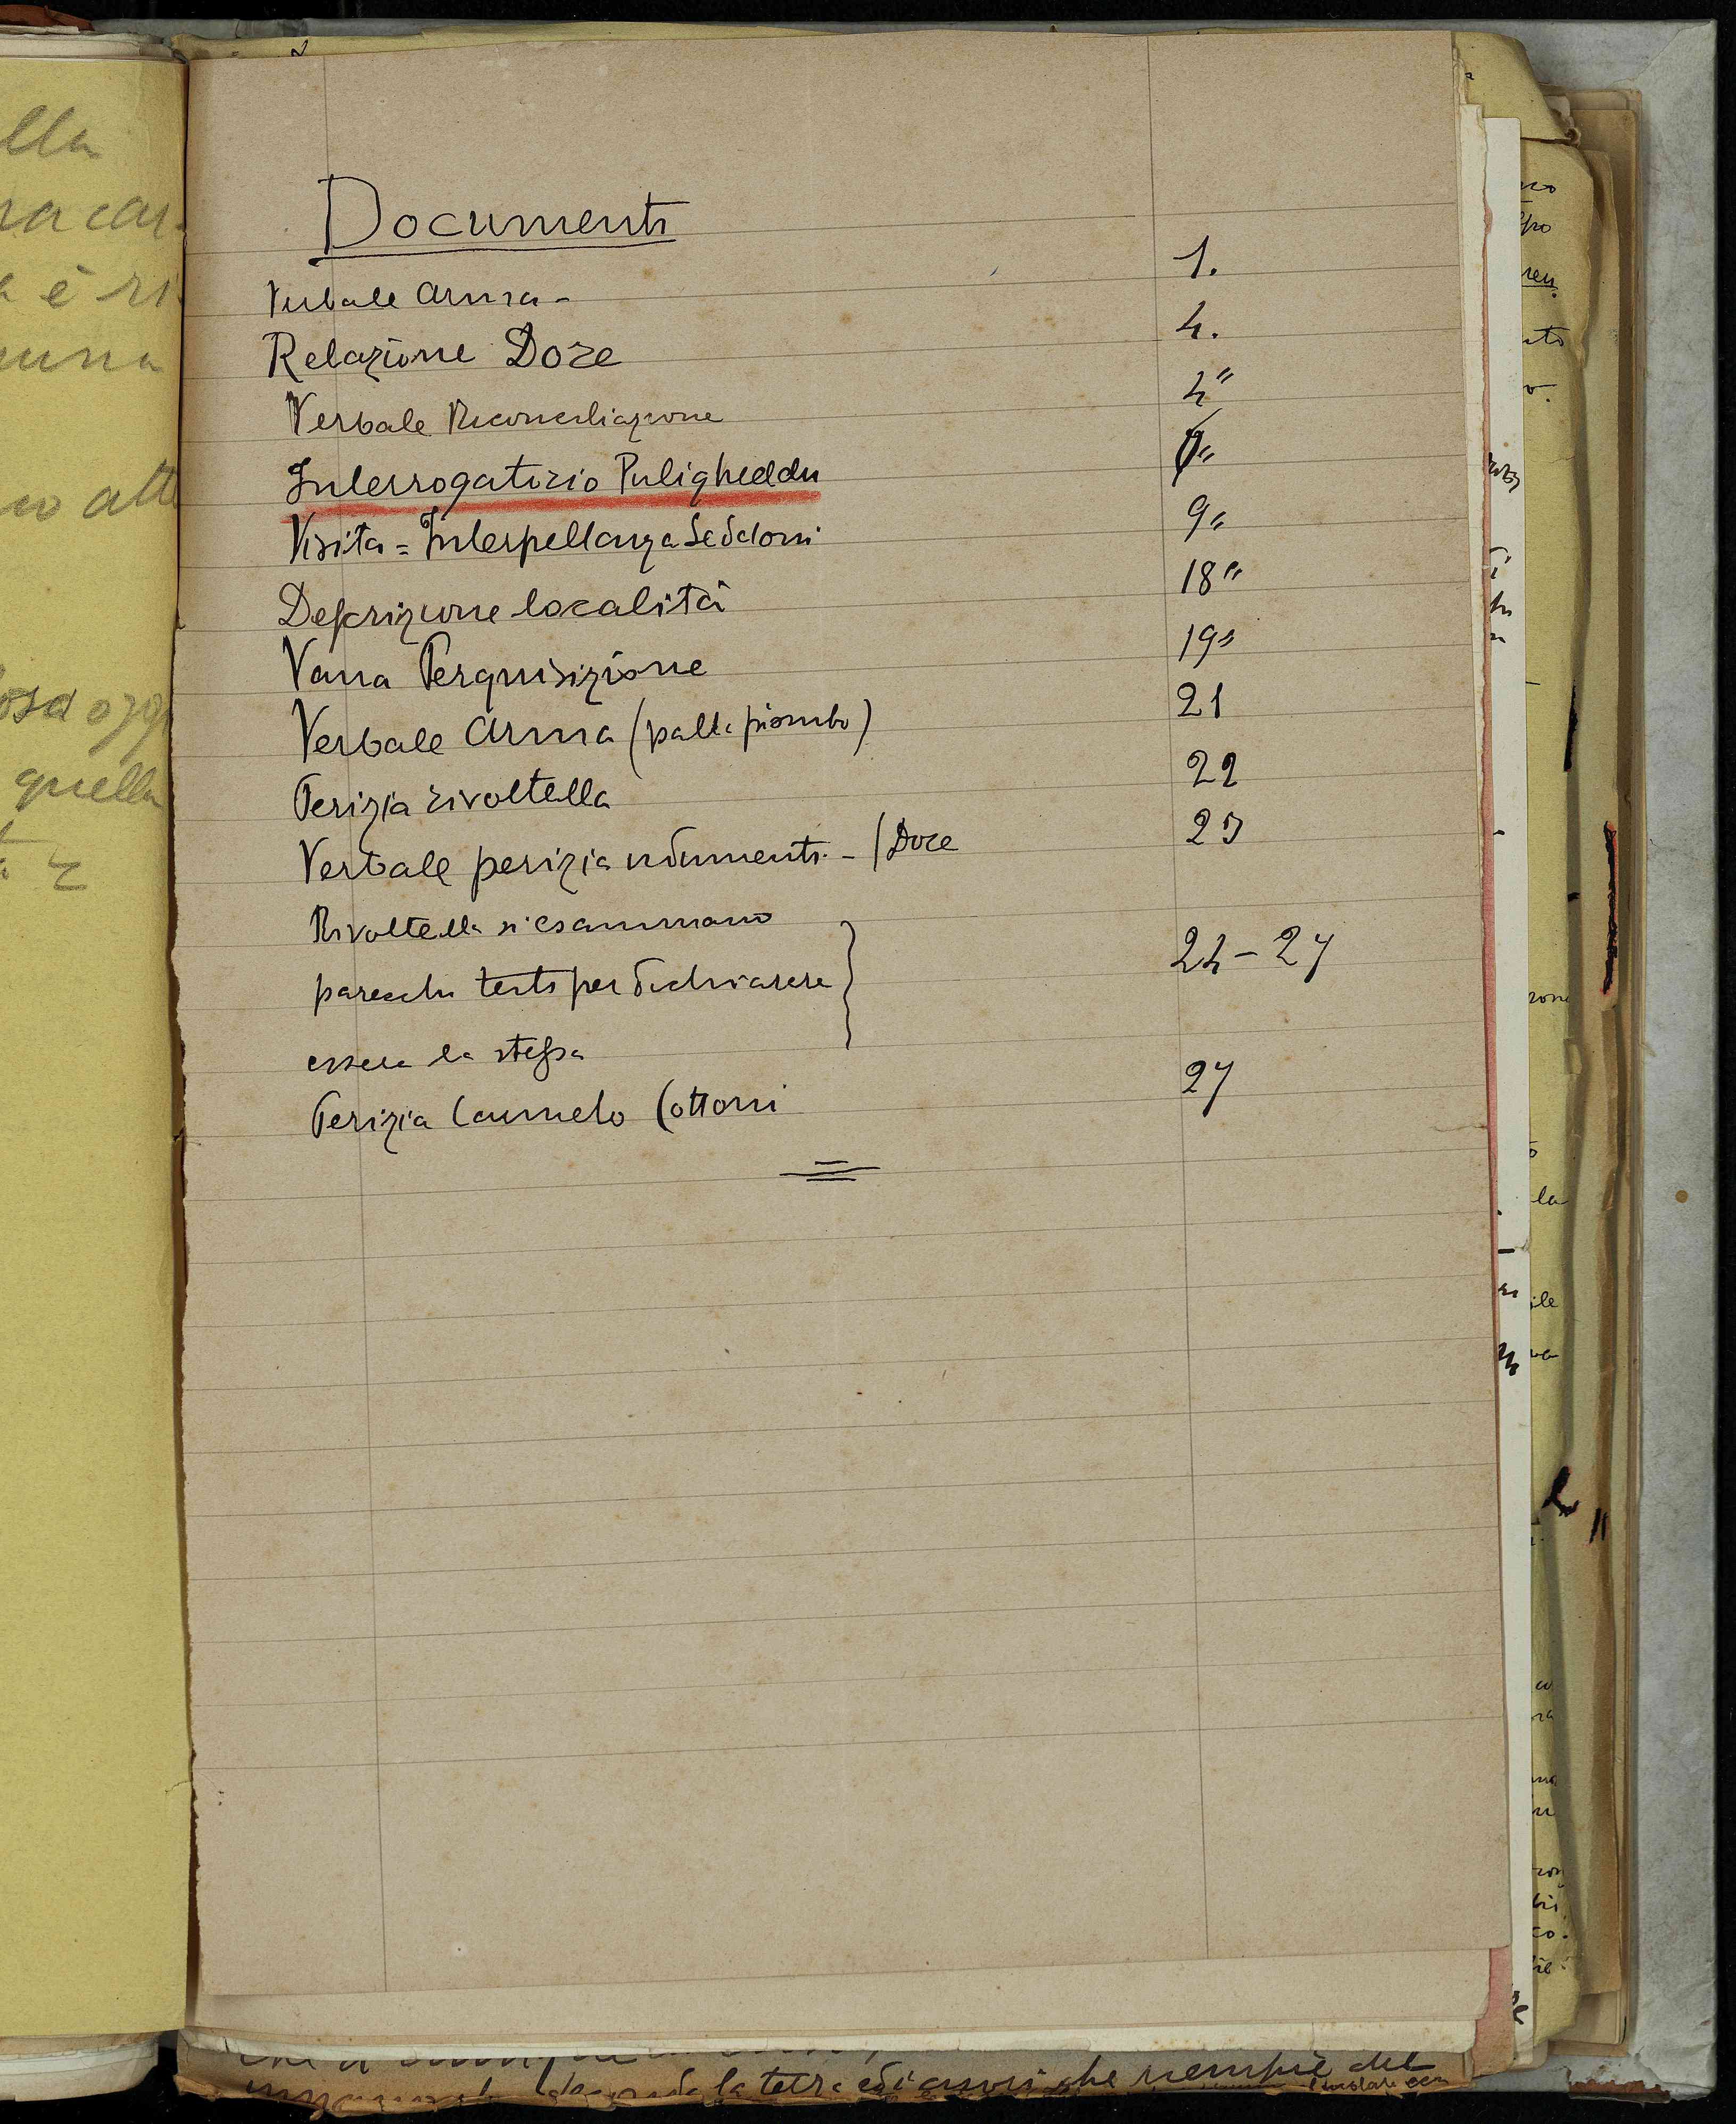 lla
è ri
quella
Documenti
Verbale Arma - 1.
Relazione Dore 4.
Verbale Riconciliazione 4"
Interrogatorio Puligheddu "
Visita = Interpellanza Seddoni 9"
Descrizione località 18"
Vana Perquisizione 19"
Verbale Arma (palla piombo) 21
Perizia rivoltella 22
Verbale perizia indumenti - (Dore 23
Rivoltella si esaminano
parecchi testi per dichiarare } 24 - 27
essere la stessa
Perizia (ottoni 27
la che riempie del